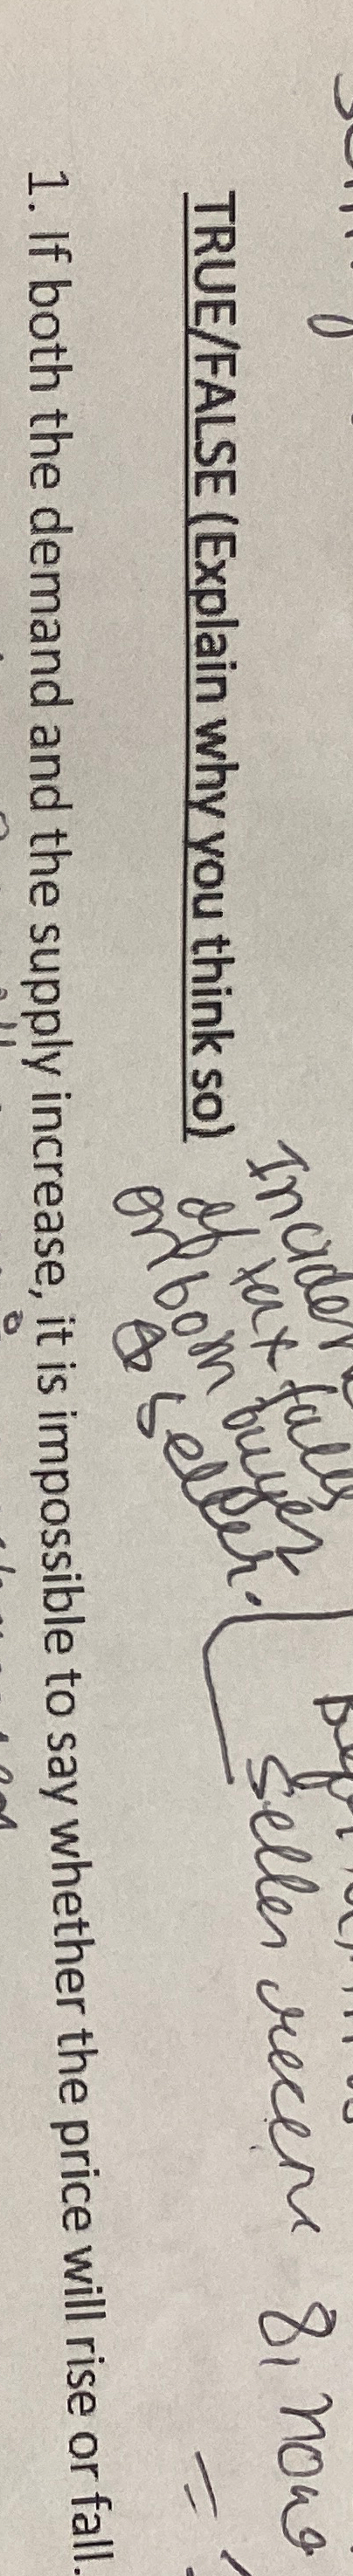 TRUE/FALSE (Explain why you think so)
of tax falls
on both buyer
& seller.
seller 8, now
1. If both the demand and the supply increase, it is impossible to say whether the price will rise or fall.